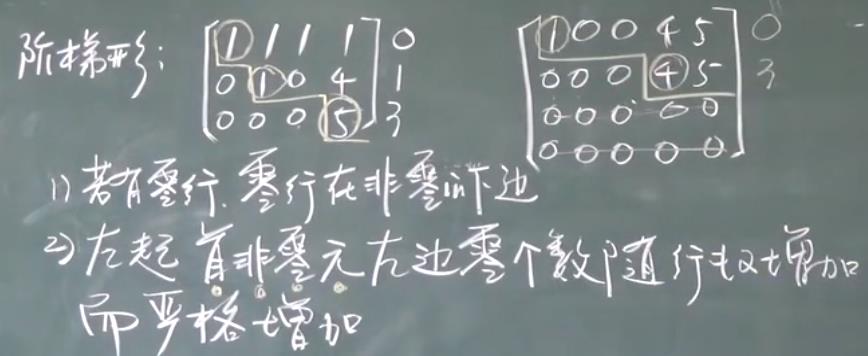 阶梯形: [1 1 1 1] 0 [1 0 0 4 5] 0
[0 1 0 4] 1 [0 0 0 4 5] 3
[0 0 0 5] 3 [0 0 0 0 0]
[0 0 0 0 0]
1) 若有零行. 零行在非零行下边
2) 左起首非零元左边零个数随行数增加
而严格增加